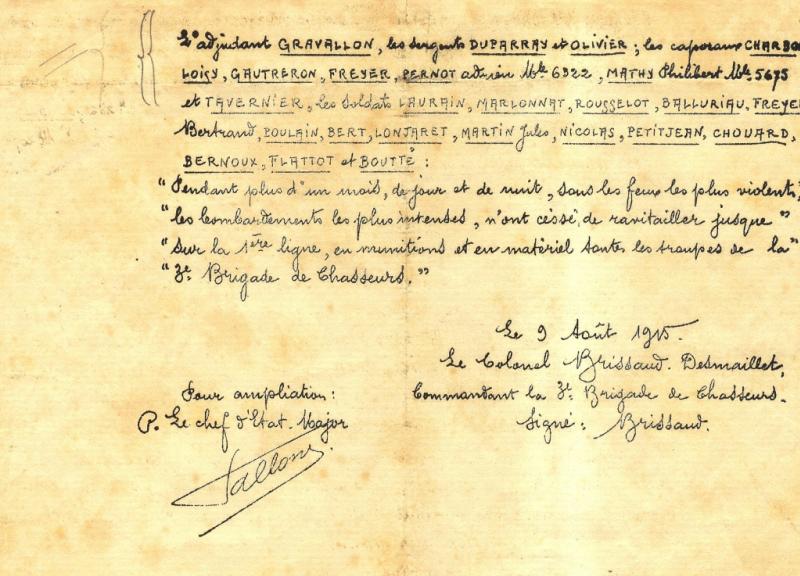 L'adjudant GRAVALLON, les sergents DUPARRAY et OLIVIER ; les caporaux CHARBON
LOISY, GAUTRERON, FREYER, PERNOT adrien Mle 6922, MATHY Philibert Mle 5675
et TAVERNIER, les soldats LAURAIN, MARLONNAT, ROUSSELOT, BALLURIAU, FREYE
Bertrand, POULAIN, BERT, LONJARET, MARTIN Jules, NICOLAS, PETITJEAN, CHOUARD,
BERNOUX, FLATTOT et BOUTTÉ :
"Pendant plus d'un mois, de jour et de nuit, sous les feux les plus violents,
"les bombardements les plus intenses, n'ont cessé, de ravitailler jusque"
"sur la 1ère ligne, en munitions et en matériel toutes les troupes de la"
"3e Brigade de Chasseurs."
Le 9 Août 1915.
Le Colonel Brissaud. Desmaillet,
Commandant la 3e Brigade de Chasseurs.
Signé : Brissaud.
Pour ampliation :
P. Le chef d'Etat. Major